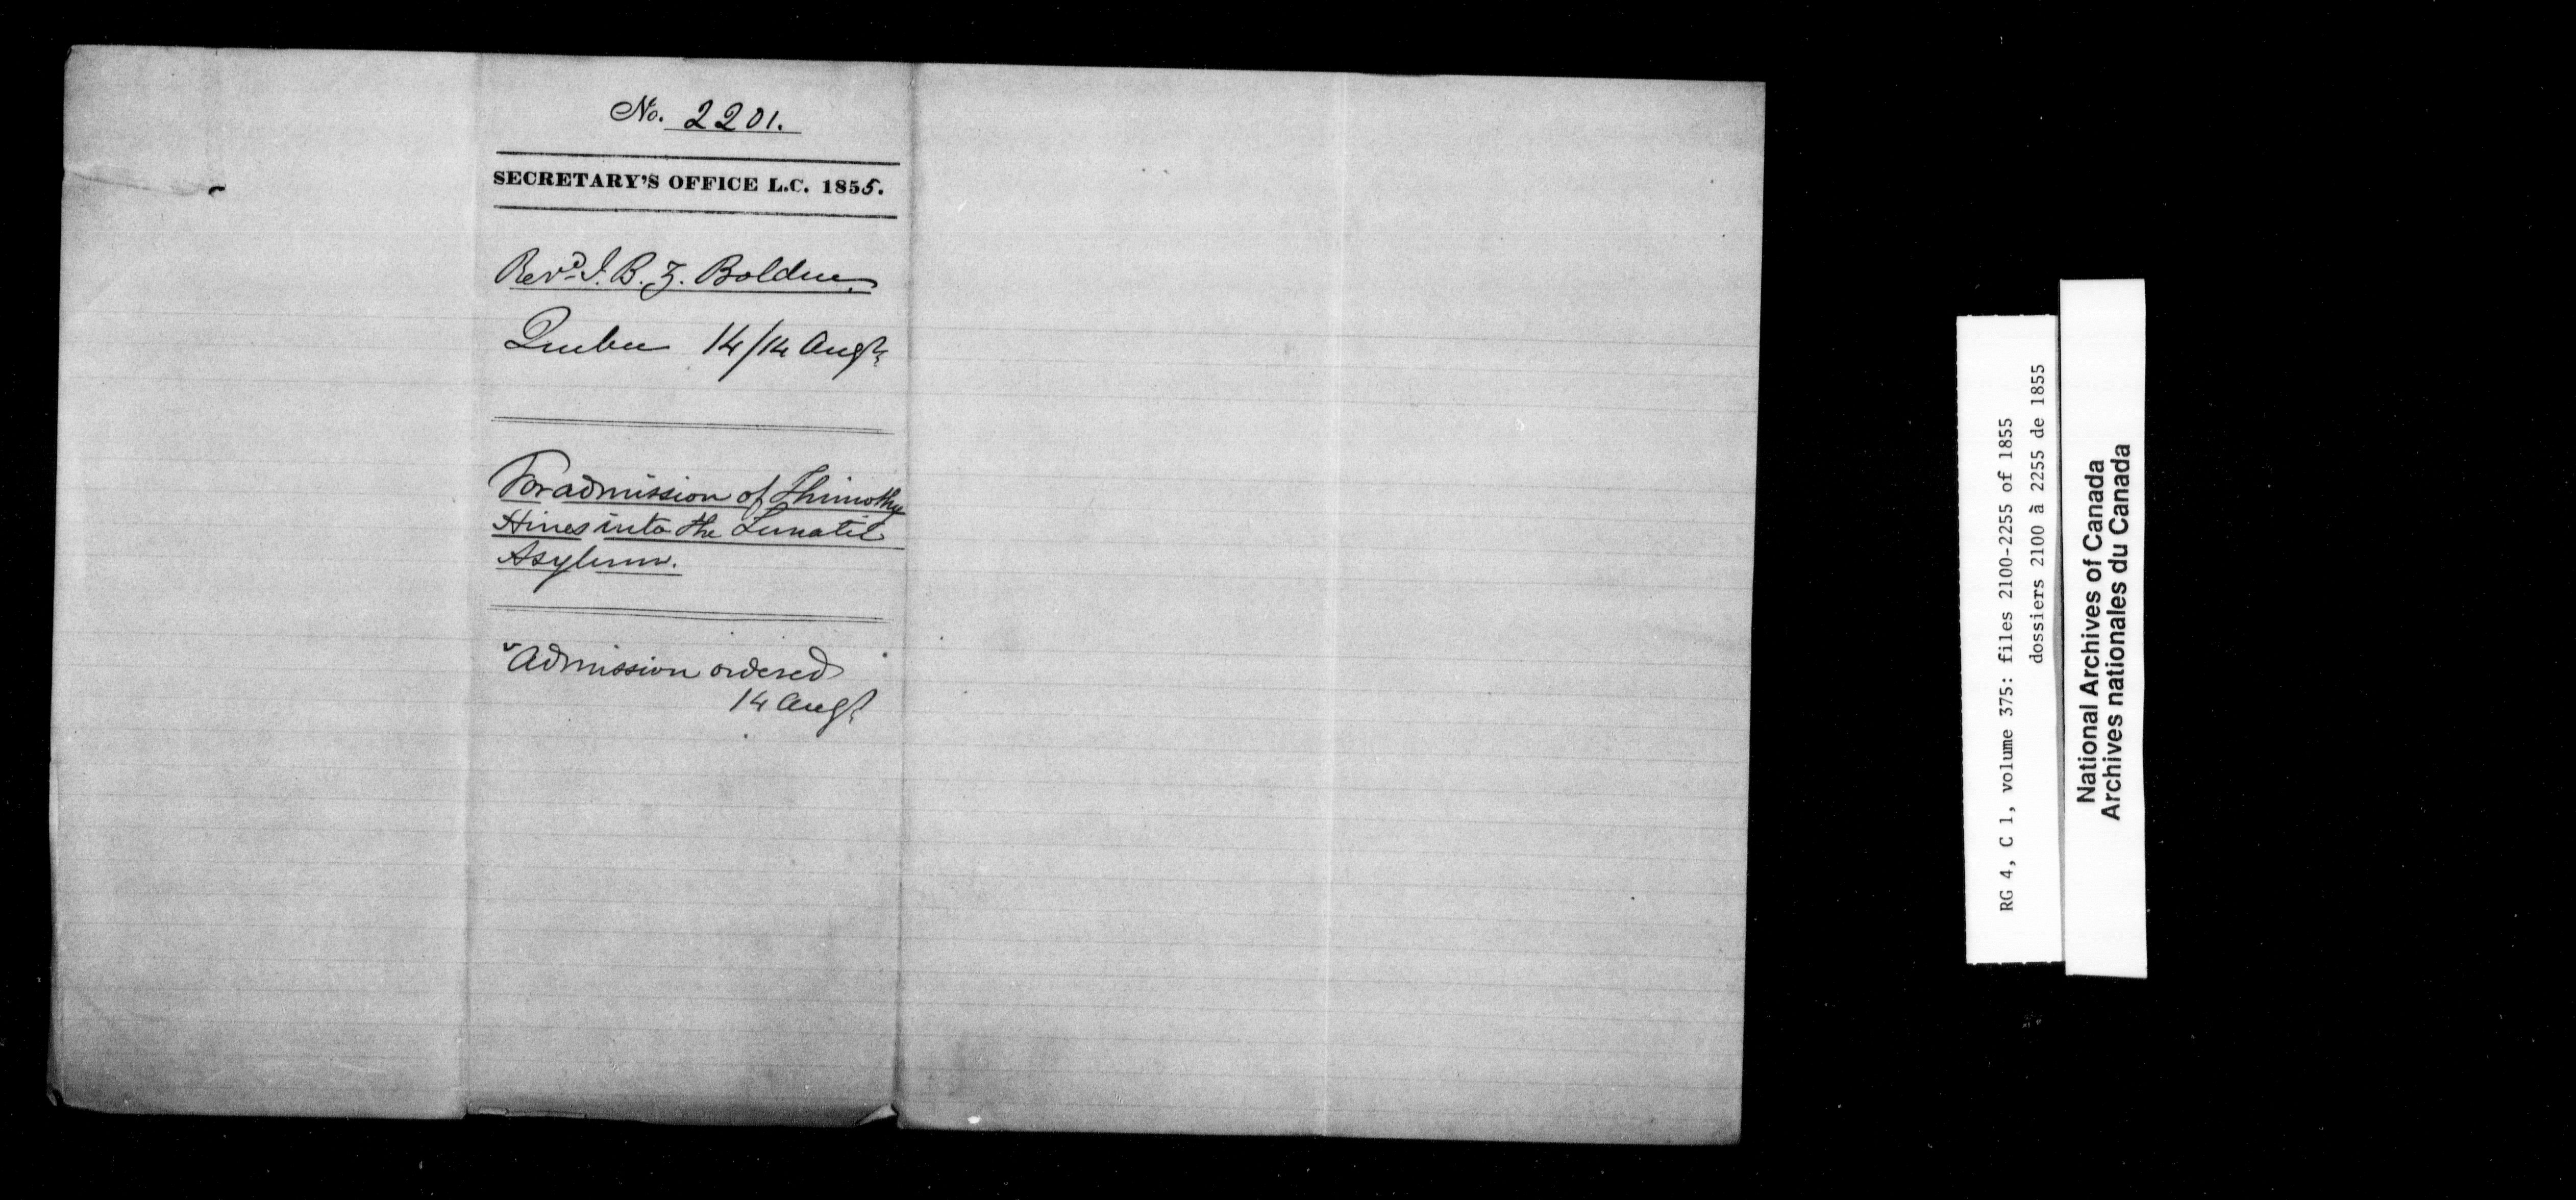 No. 2201.
SECRETARY'S OFFICE L.C. 1855.
Revd. J. B. Z. Bolduc
Quebec 14/14 Augt.
For admission of Thimothy
Hines into the Lunatic
Asylum.
Admission ordered
14 Augt.
RG 4, C 1, volume 375: files 2100-2255 of 1855
dossiers 2100 à 2255 de 1855
National Archives of Canada
Archives nationales du Canada